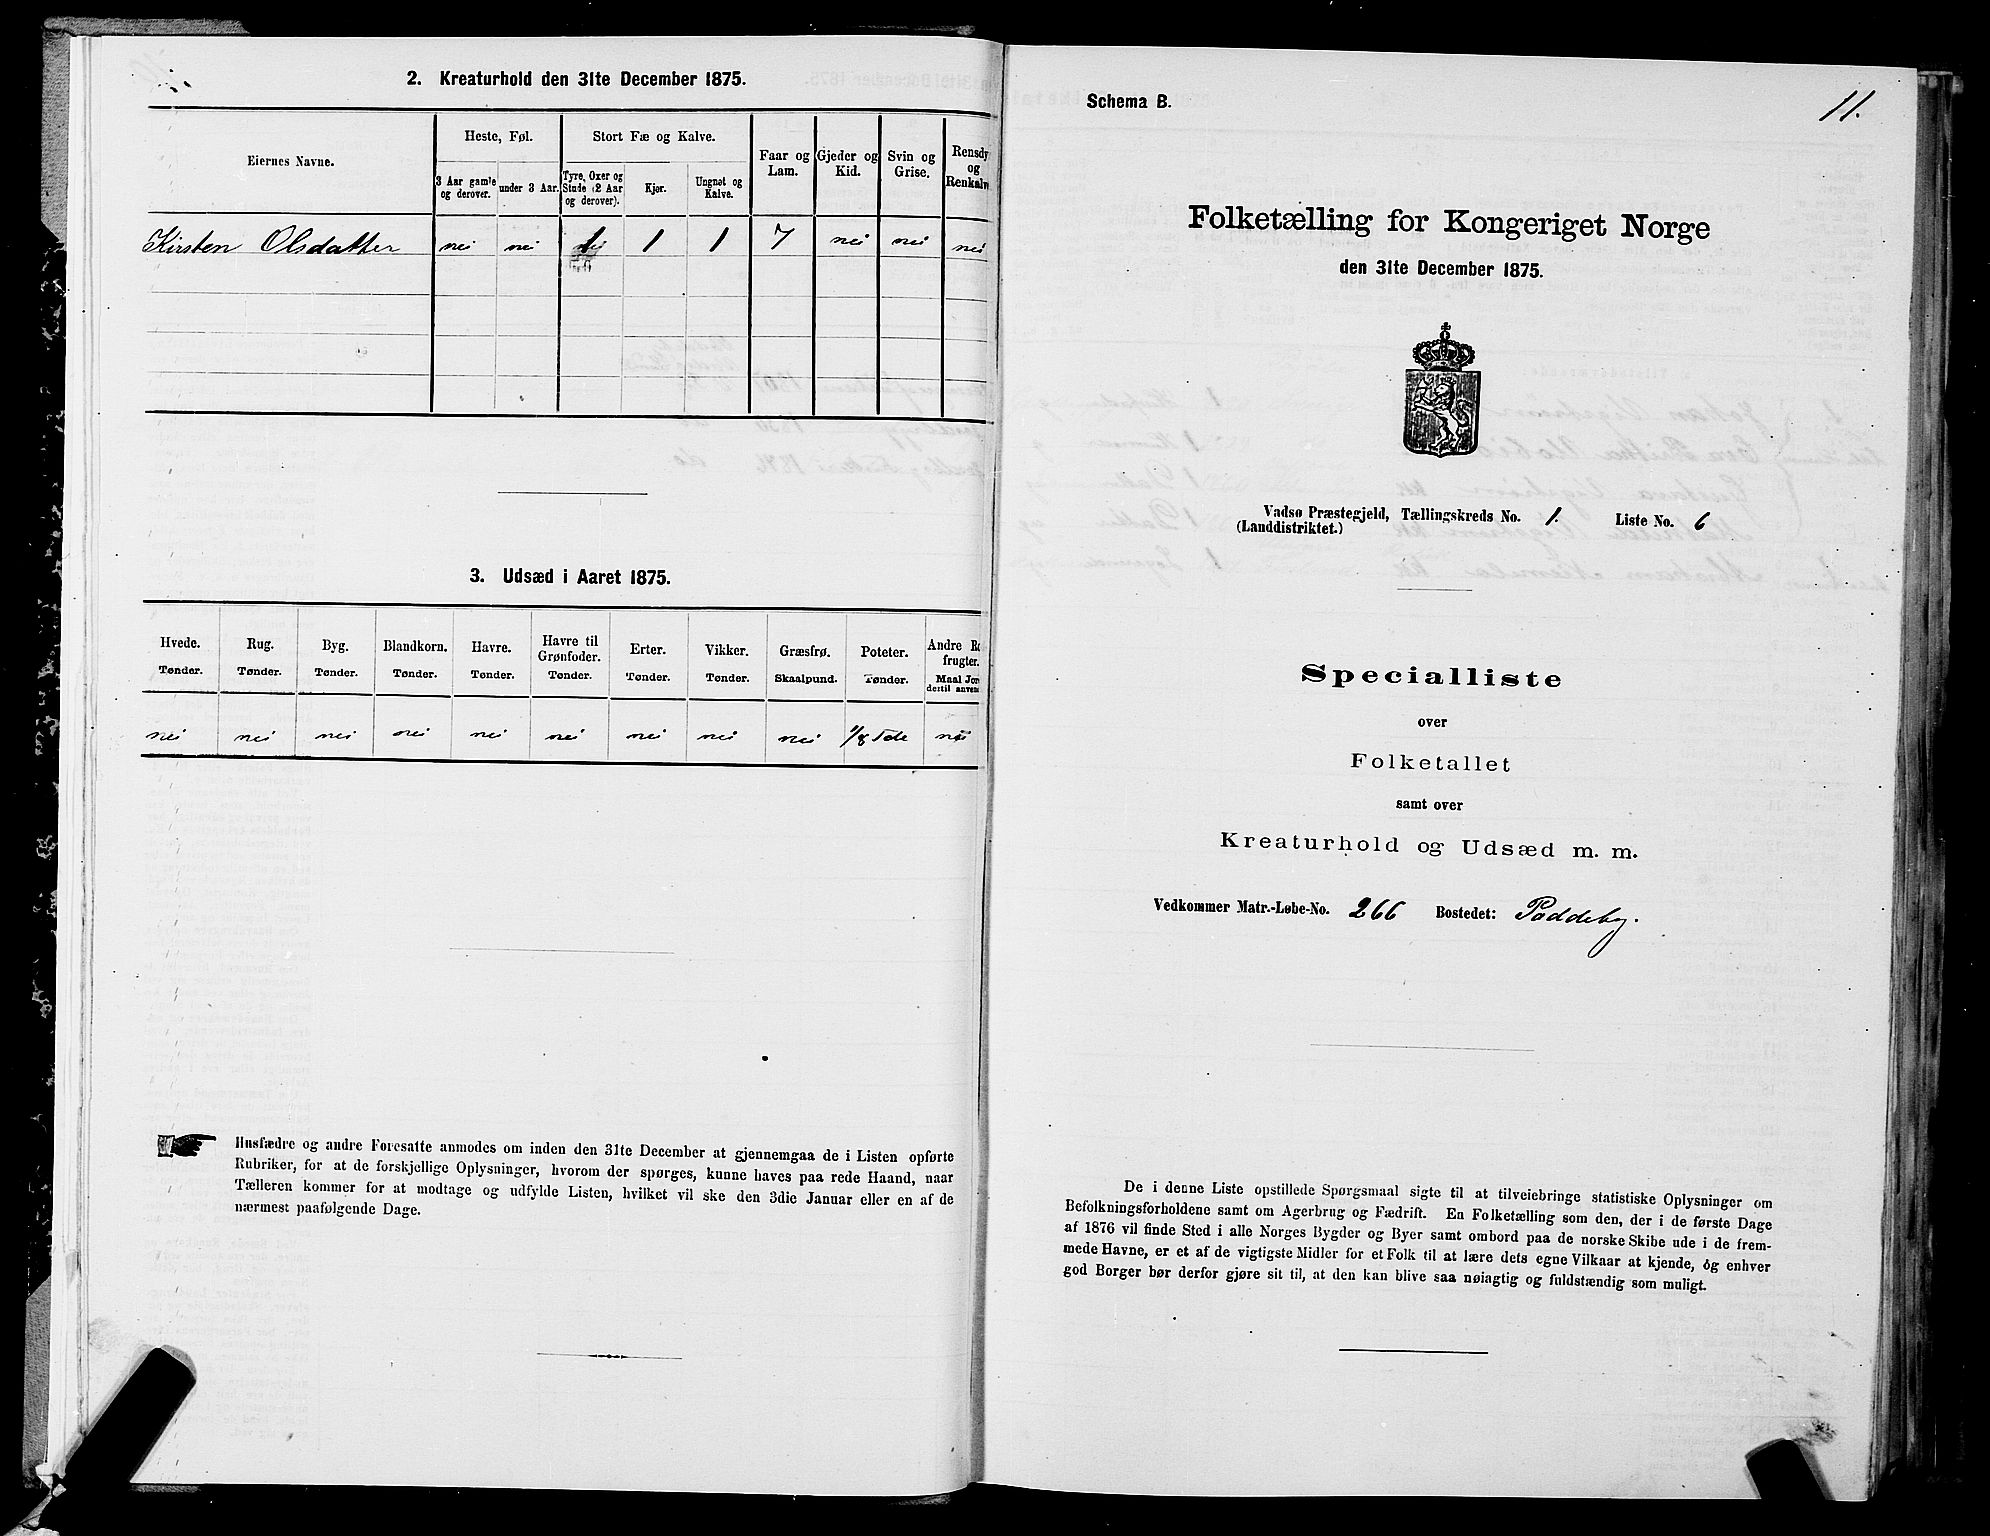 2. Kreaturhold den 31te December 1875.
Eiernes Navne.
Heste, Føl.
Stort Fæ og Kalve.
Faar og Lam.
Gjeder og Kid.
Svin og Grise.
Rensdy og Renkalve
3 Aar gamle og derover.
under 3 Aar.
Tyre, Oxer og Stude (2 Aar og derover).
Kjør.
Ungnøt og Kalve.
Kirsten Olsdatter nei nei 1 1 1 7 nei nei nei
3. Udsæd i Aaret 1875.
Hvede. Tønder.
Rug. Tønder.
Byg. Tønder.
Blandkorn. Tønder.
Havre. Tønder.
Havre til Grønfoder. Tønder.
Erter. Tønder.
Vikker. Tønder.
Græsfrø. Skaalpund.
Poteter. Tønder.
Andre Ro frugter. Maal Jor dertil anven
nei nei nei nei nei nei nei nei nei 1/8 Tde nei
Husfædre og andre Foresatte anmodes om inden den 31te December at gjennemgaa de i Listen opførte
Rubriker, for at de forskjellige Oplysninger, hvorom der spørges, kunne haves paa rede Haand, naar
Tælleren kommer for at modtage og udfylde Listen, hvilket vil ske den 3die Januar eller en af de
nærmest paafølgende Dage.
Schema B.
11.
Folketælling for Kongeriget Norge
den 31te December 1875.
Vadsø Præstegjeld, Tællingskreds No. 1. Liste No. 6
(Landdistriktet.)
Specialliste
over
Folketallet
samt over
Kreaturhold og Udsæd m. m.
Vedkommer Matr.-Løbe-No. 266 Bostedet: Paddeby.
De i denne Liste opstillede Spørgsmaal sigte til at tilveiebringe statistiske Oplysninger om
Befolkningsforholdene samt om Agerbrug og Fædrift. En Folketælling som den, der i de første Dage
af 1876 vil finde Sted i alle Norges Bygder og Byer samt ombord paa de norske Skibe ude i de frem-
mede Havne, er et af de vigtigste Midler for et Folk til at lære dets egne Vilkaar at kjende, og enhver
god Borger bør derfor gjøre sit til, at den kan blive saa nøiagtig og fuldstændig som muligt.